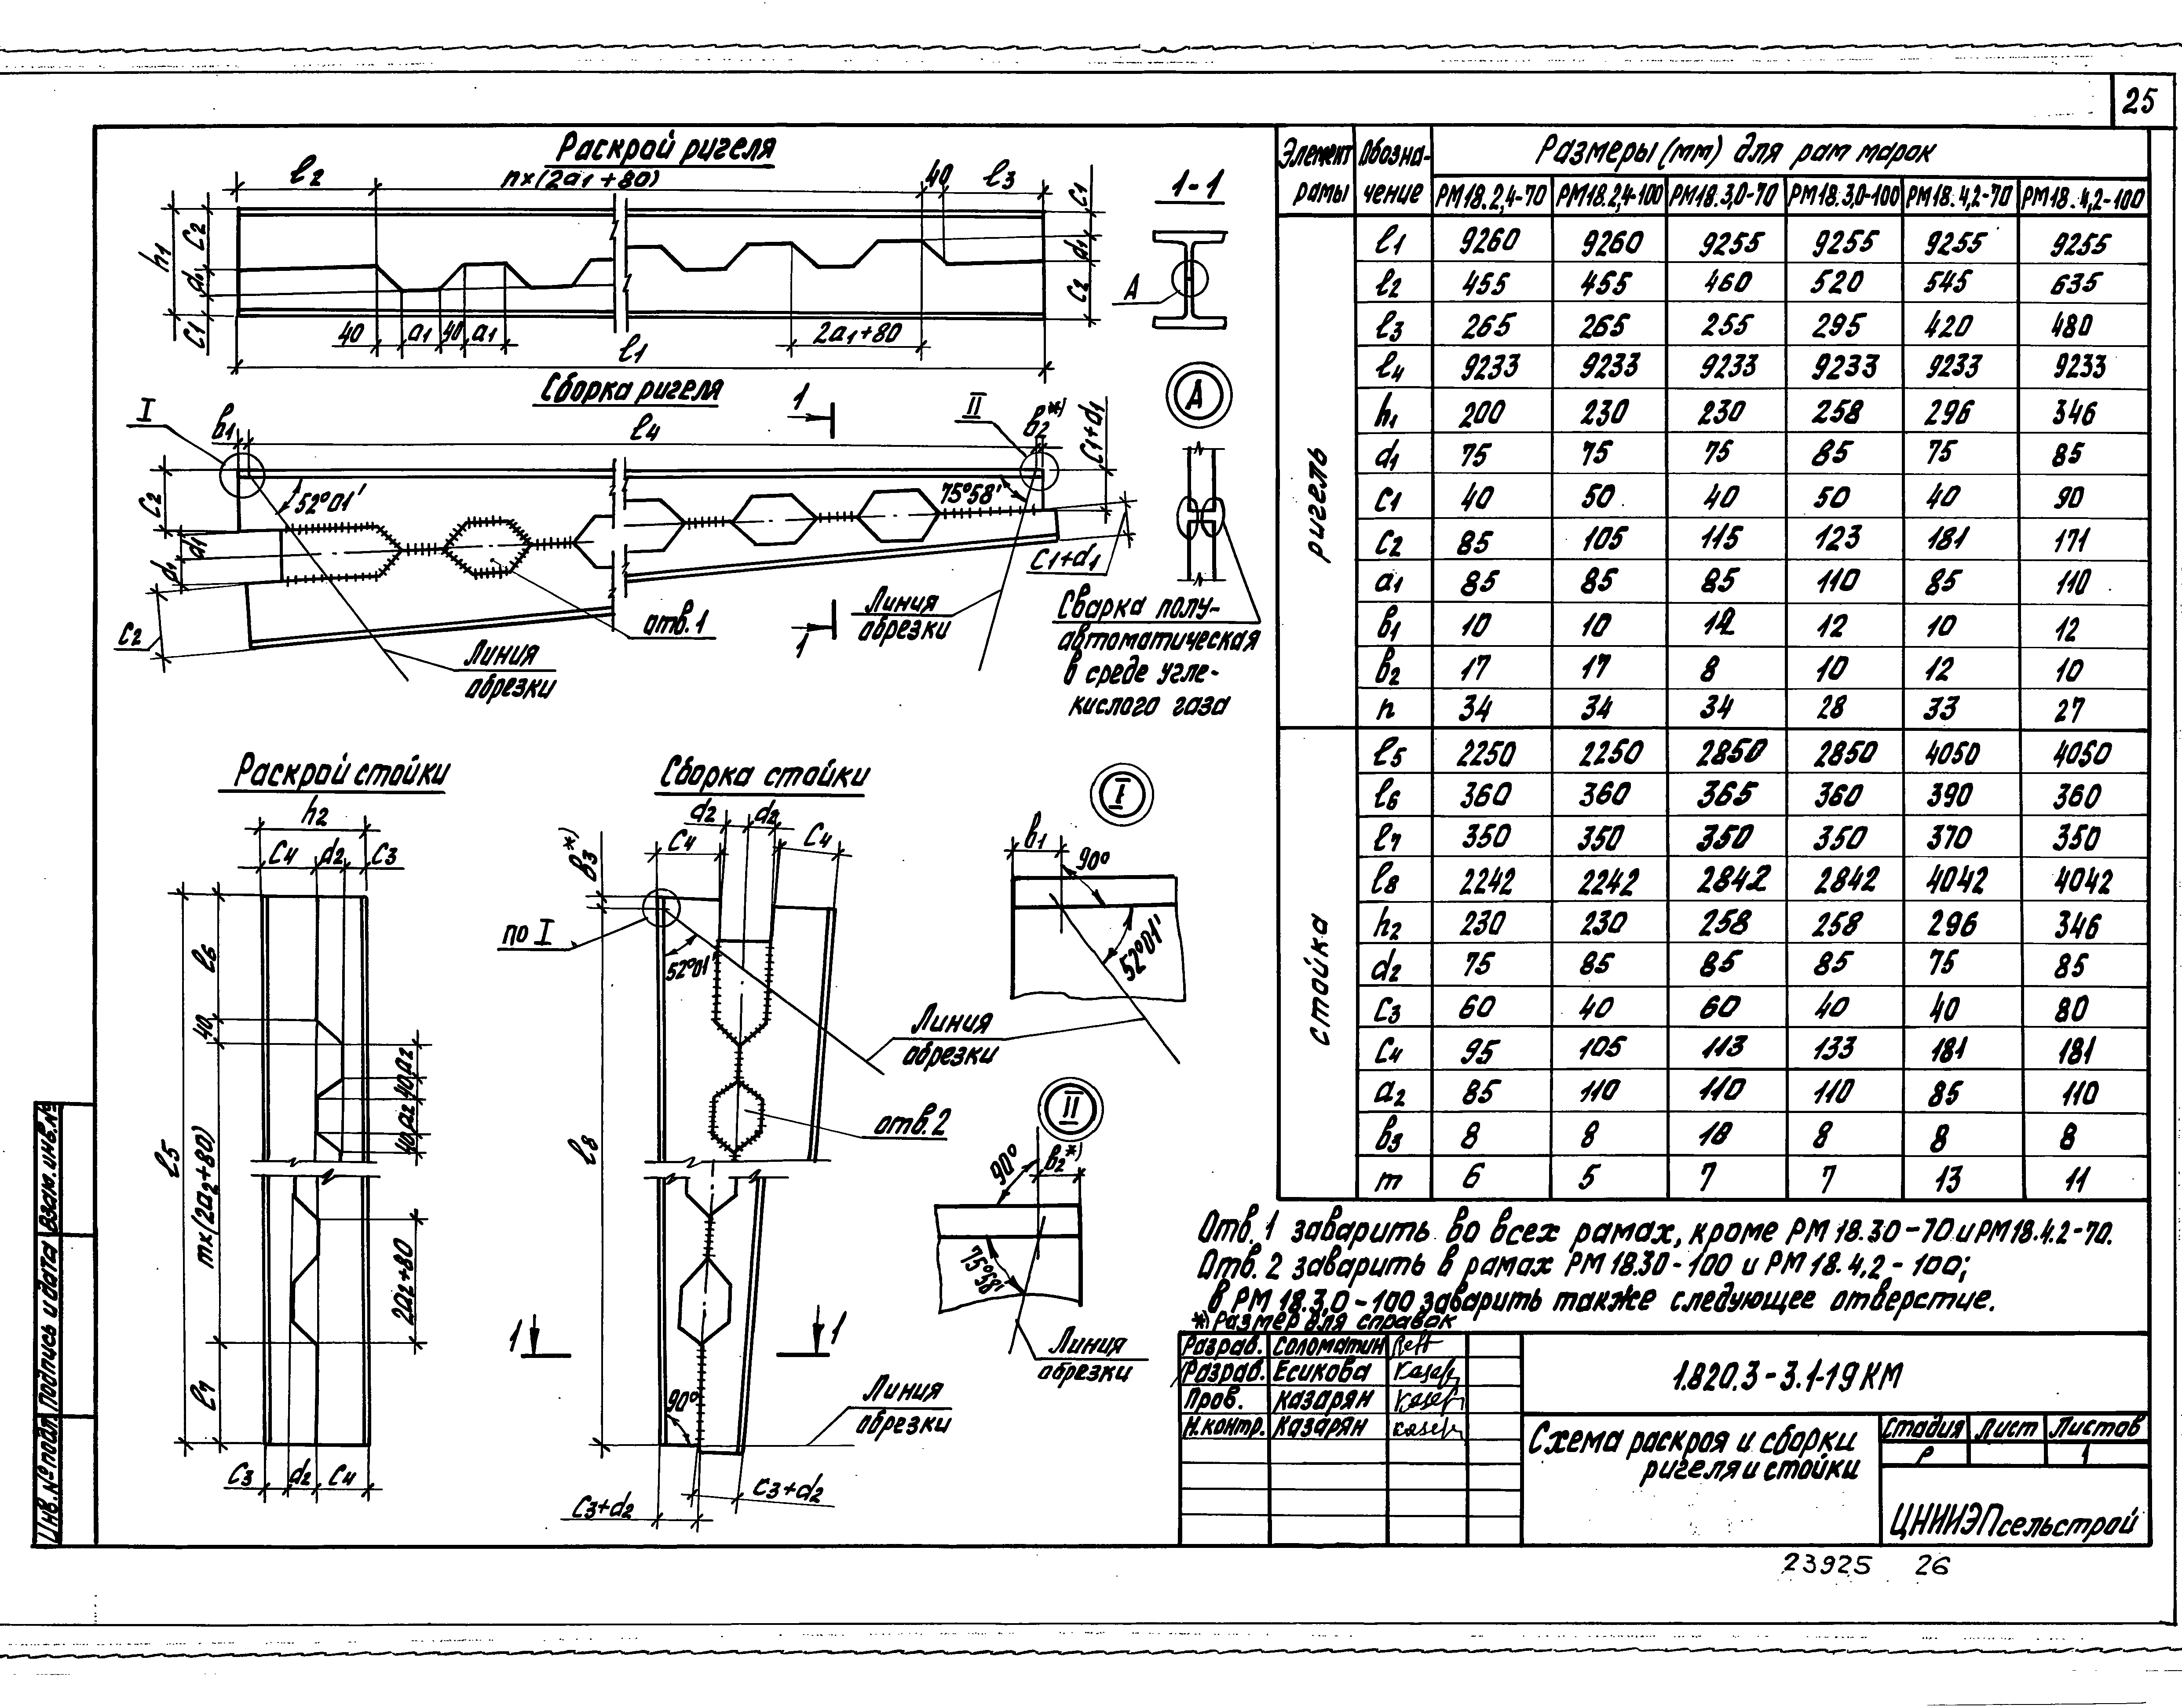 25
Раскрой ригеля
l2
n×(2a1+80)
40
l3
h1
c2
d1
c1
c1
d1
c2
40
a1
40
a1
2a1+80
l1
1-1
А
Сборка ригеля
I
b1
l4
1
II
b2*)
c1+d1
c2
52°01'
75°58'
d1
d1
c2
c1+d1
отв.1
Линия
обрезки
Линия
обрезки
1
А
Сварка полу-
автоматическая
в среде угле-
кислого газа
Раскрой стойки
h2
c4 d2 c3
l5
l6
40
m×(2a2+80)
l7
a2
40
a2
40
2a2+80
c3 d2 c4
Сборка стойки
d2 d2
c4 c4
b3*)
по I
52°01'
l8
Линия
обрезки
отв.2
1 1
90°
Линия
обрезки
c3+d2
c3+d2
I
b1
90°
52°01'
II
90°
b2*)
75°58'
Линия
обрезки
Элемент рамы Обозна-чение Размеры (мм) для рам марок
РМ18.2,4-70 РМ18.2,4-100 РМ18.3,0-70 РМ18.3,0-100 РМ18.4,2-70 РМ18.4,2-100
ригель
l1 9260 9260 9255 9255 9255 9255
l2 455 455 460 520 545 635
l3 265 265 255 295 420 480
l4 9233 9233 9233 9233 9233 9233
h1 200 230 230 258 296 346
d1 75 75 75 85 75 85
c1 40 50 40 50 40 90
c2 85 105 115 123 181 171
a1 85 85 85 110 85 110
b1 10 10 12 12 10 12
b2 17 17 8 10 12 10
n 34 34 34 28 33 27
стойка
l5 2250 2250 2850 2850 4050 4050
l6 360 360 365 360 390 360
l7 350 350 350 350 370 350
l8 2242 2242 2842 2842 4042 4042
h2 230 230 258 258 296 346
d2 75 85 85 85 75 85
c3 60 40 60 40 40 80
c4 95 105 113 133 181 181
a2 85 110 110 110 85 110
b3 8 8 18 8 8 8
m 6 5 7 7 13 11
Отв.1 заварить во всех рамах, кроме РМ 18.30-70 и РМ18.4.2-70.
Отв.2 заварить в рамах РМ 18.30-100 и РМ 18.4,2-100;
в РМ 18.3,0-100 заварить также следующее отверстие.
*) Размер для справок
Разраб. Соломатин
Разраб. Есикова
Пров. Казарян
Н.контр. Казарян
1.820.3-3.1-19 КМ
Схема раскроя и сборки
ригеля и стойки
Стадия Лист Листов
Р 1
ЦНИИЭПсельстрой
23925 26
Взам. инв.№
Подпись и дата
Инв.№ подл.